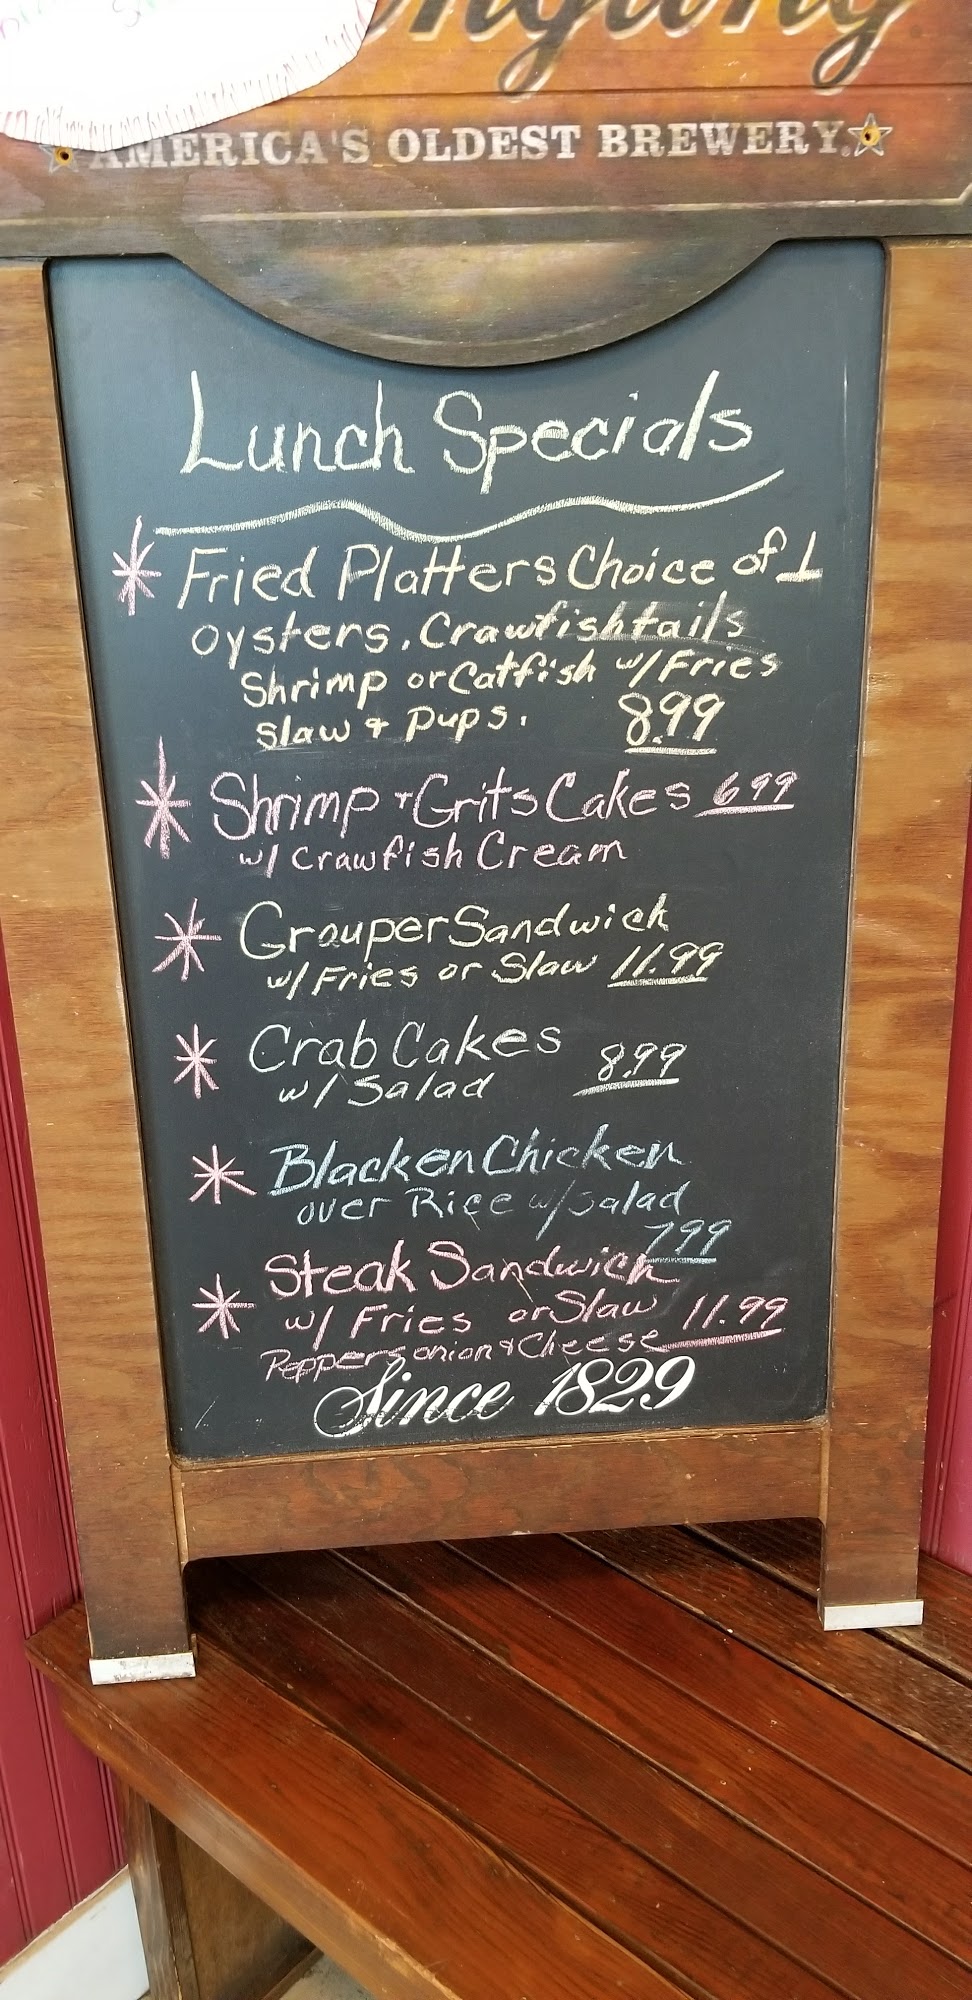 AMERICA'S OLDEST BREWERY.
Lunch Specials
Fried Platters Choice of 1
oysters, Crawfishtails
Shrimp or Catfish w/ Fries
Slaw + pups. 8.99
Shrimp + Grits Cakes 6.99
w/ Crawfish Cream
Grouper Sandwich
w/ Fries or Slaw 11.99
Crab Cakes 8.99
w/ Salad
Blacken Chicken
over Rice w/ Salad
7.99
Steak Sandwich
w/ Fries or Slaw 11.99
Peppers onion & Cheese
Since 1829